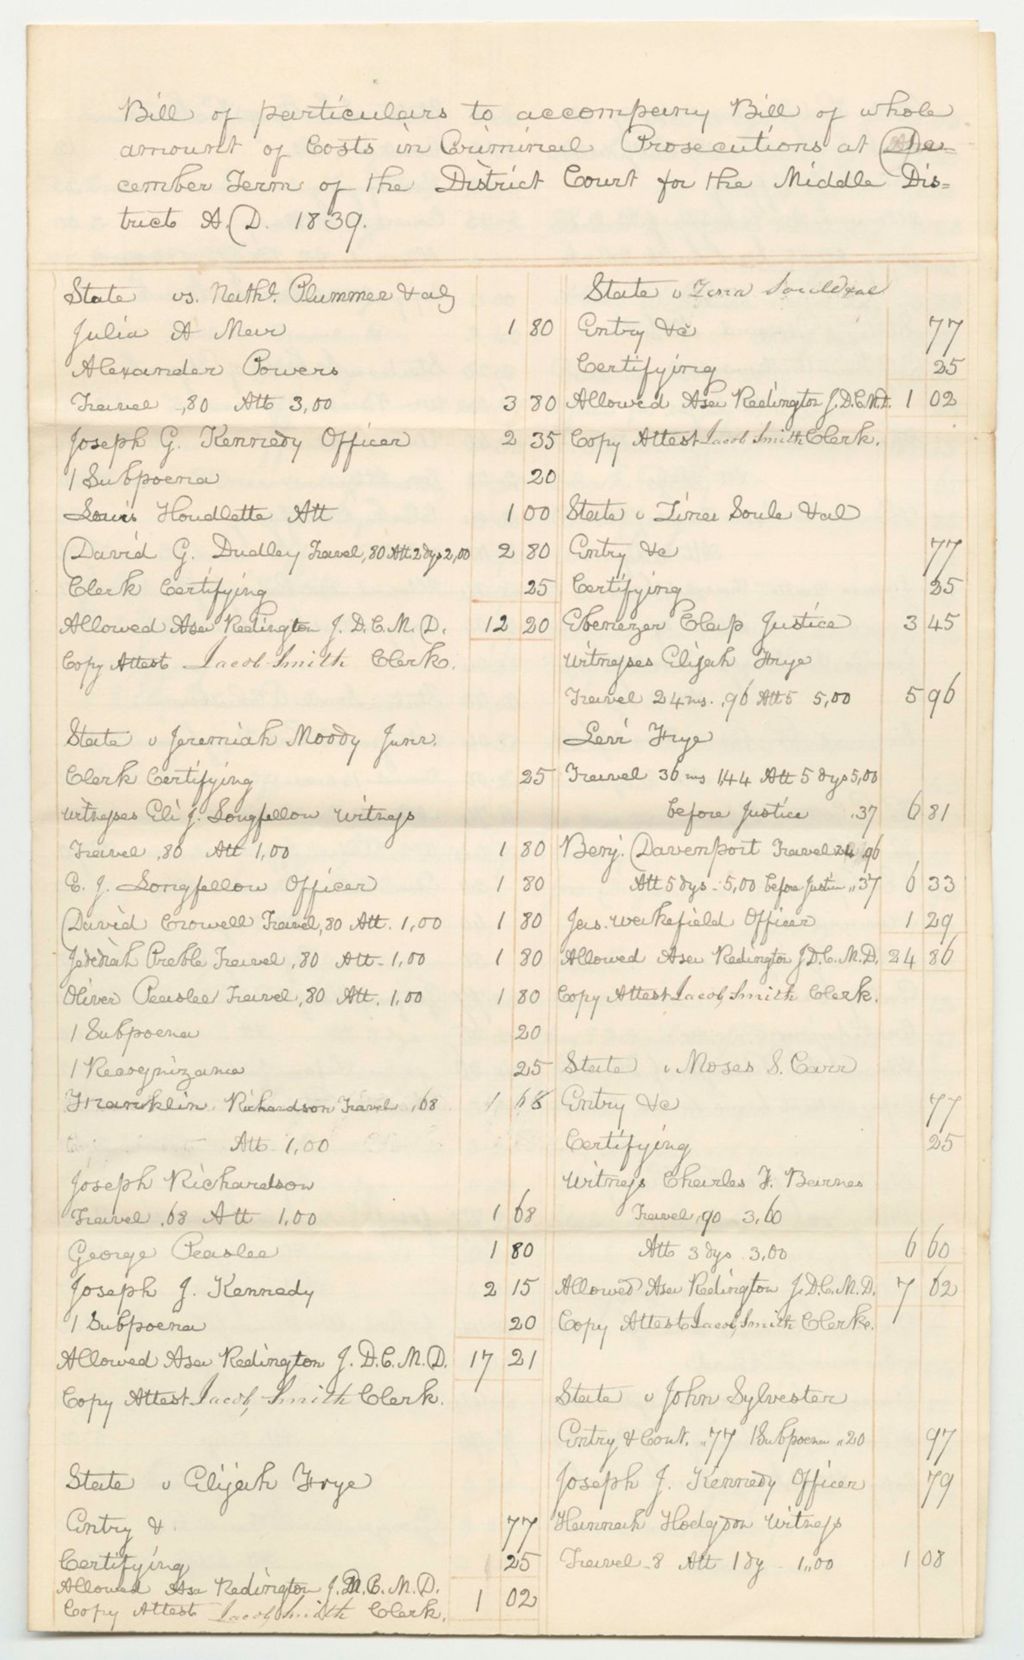 Bill of particulars to accompany Bill of whole
amount of Costs in Criminal Prosecutions at De=
cember Term of the District Court for the Middle Dis=
trict A.D. 1839.
State vs. Nathl. Plummer & al
Julia A Meir 1 80
Alexander Powers
Travel ,80 Att 3,00 3 80
Joseph G. Kennedy Officer 2 35
1 Subpoena 20
Louis Houdlette Att 1 00
David G. Dudley Travel,80 Att 2 dys 2,00 2 80
Clerk Certifying 25
Allowed Asa Redington J. D. C. M. D. 12 20
Copy Attest Jacob Smith Clerk.
State v Jeremiah Moody Junr.
Clerk Certifying 25
Witnesses Eli J. Longfellow Witness
Travel ,80 Att 1,00 1 80
E. J. Longfellow Officer 1 80
David Crowell Travel,80 Att. 1,00 1 80
Jedediah Preble Travel ,80 Att - 1,00 1 80
Oliver Peaslee Travel,,80 Att. 1,00 1 80
1 Subpoena 20
1 Recognizance 25
Franklin Richardson Travel ,68 1 68
Att 1,00
Joseph Richardson
Travel ,68 Att 1,00 1 68
George Peaslee 1 80
Joseph J. Kennedy 2 15
1 Subpoena 20
Allowed Asa Redington J. D. C. M. D. 17 21
Copy Attest Jacob Smith Clerk.
State v Elijah Frye
Entry & 77
Certifying 25
Allowed Asa Redington J. D. C. M. D.
Copy Attest Jacob Smith Clerk. 1 02
State v & al
Entry &c 77
Certifying 25
Allowed Asa Redington J. D. C. M. D. 1 02
Copy Attest Jacob Smith Clerk.
State v Soule & al
Entry &c 77
Certifying 25
Ebenezer Clap Justice 3 45
Witnesses Elijah Frye
Travel 24 ms. ,96 Att 5 5,00 5 96
Levi Frye
Travel 36 ms 1,44 Att 5 dys 5,00
before Justice .37 6 81
Benj. Davenport Travel 24 96
Att 5 dys - 5,00 before Justice ,,37 6 33
Jas. Wakefield Officer 1 29
Allowed Asa Redington J. D. C. M. D. 24 86
Copy Attest Jacob Smith Clerk.
State v Moses S. Carr
Entry &c 77
Certifying 25
Witness Charles F. Barnes
Travel, 90 3,60
Att 3 dys 3,00 6 60
Allowed Asa Redington J. D. C. M. D. 7 62
Copy Attest Jacob Smith Clerk.
State v John Sylvester
Entry & Cont. ,,77 1 Subpoena ,,20 97
Joseph J. Kennedy Officer 79
Hannah Hodgdon Witness
Travel - 8 Att 1 dy 1,,00 1 08